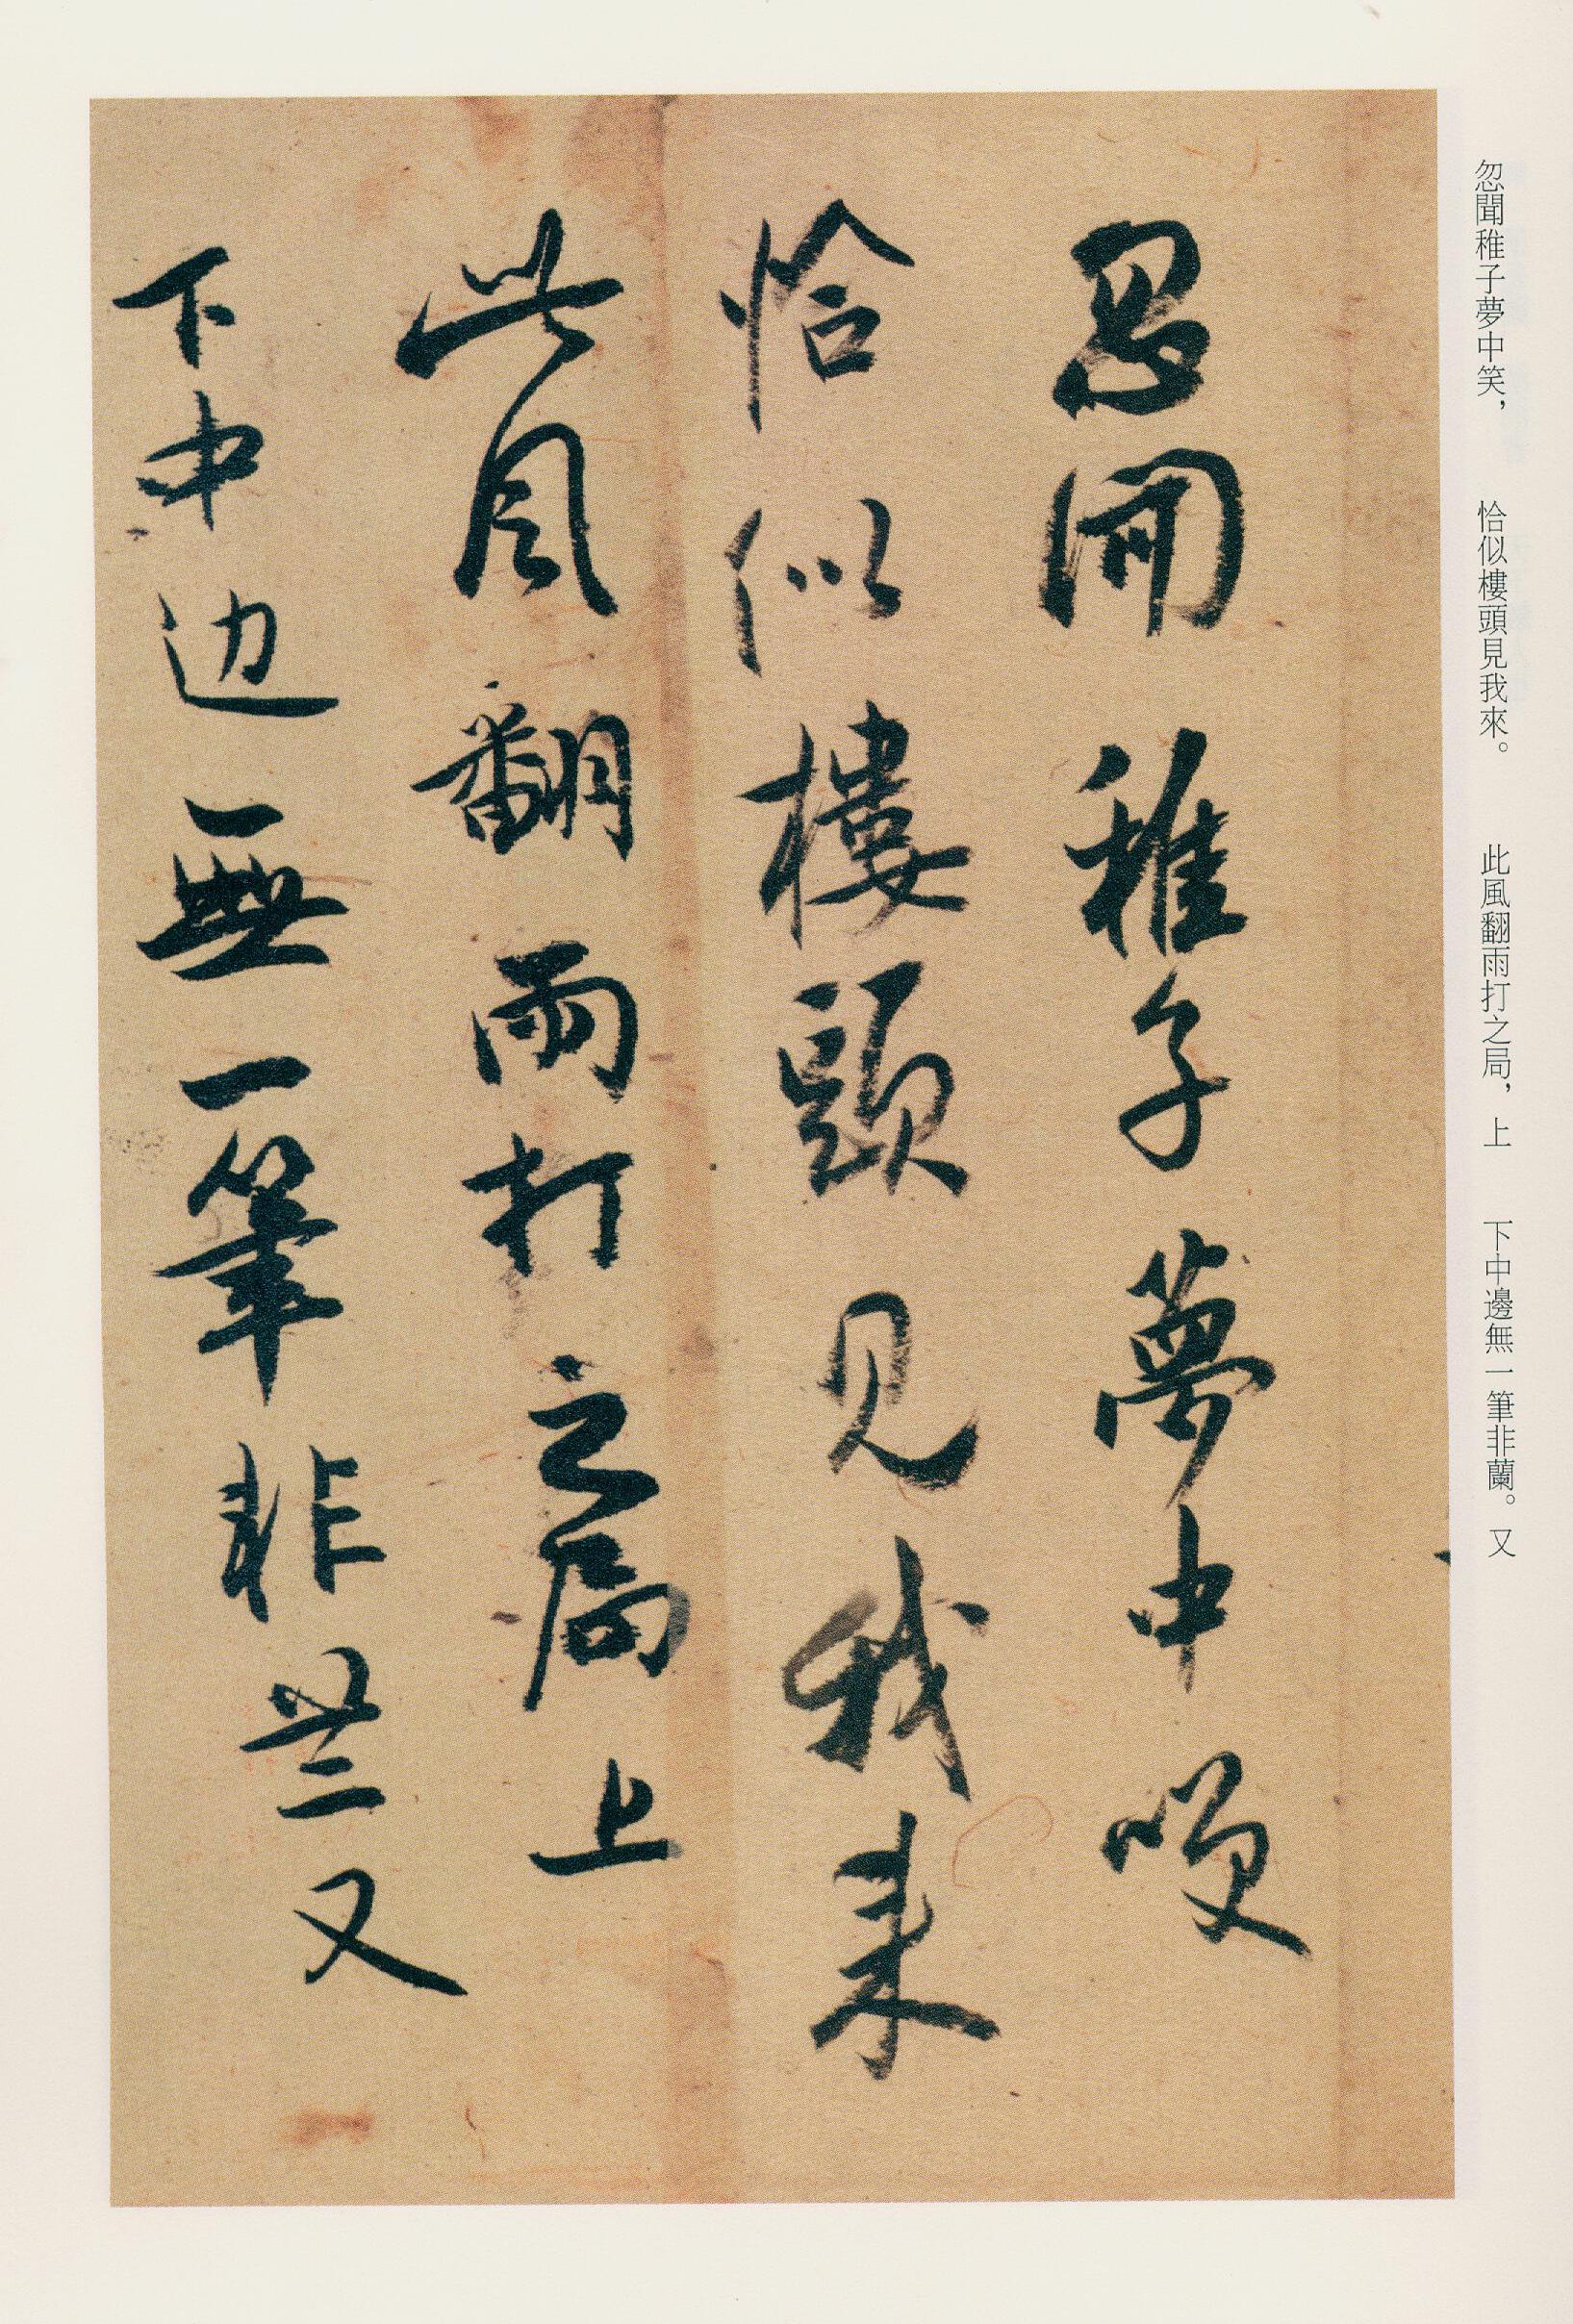 忽聞稚子夢中笑，　恰似樓頭見我來。　此風翻雨打之局，上　下中邊無一筆非蘭。又
忽闻稚子夢中唉
恰似樓頭见我来
此風翻雨打之局上
下中边無一筆非兰又